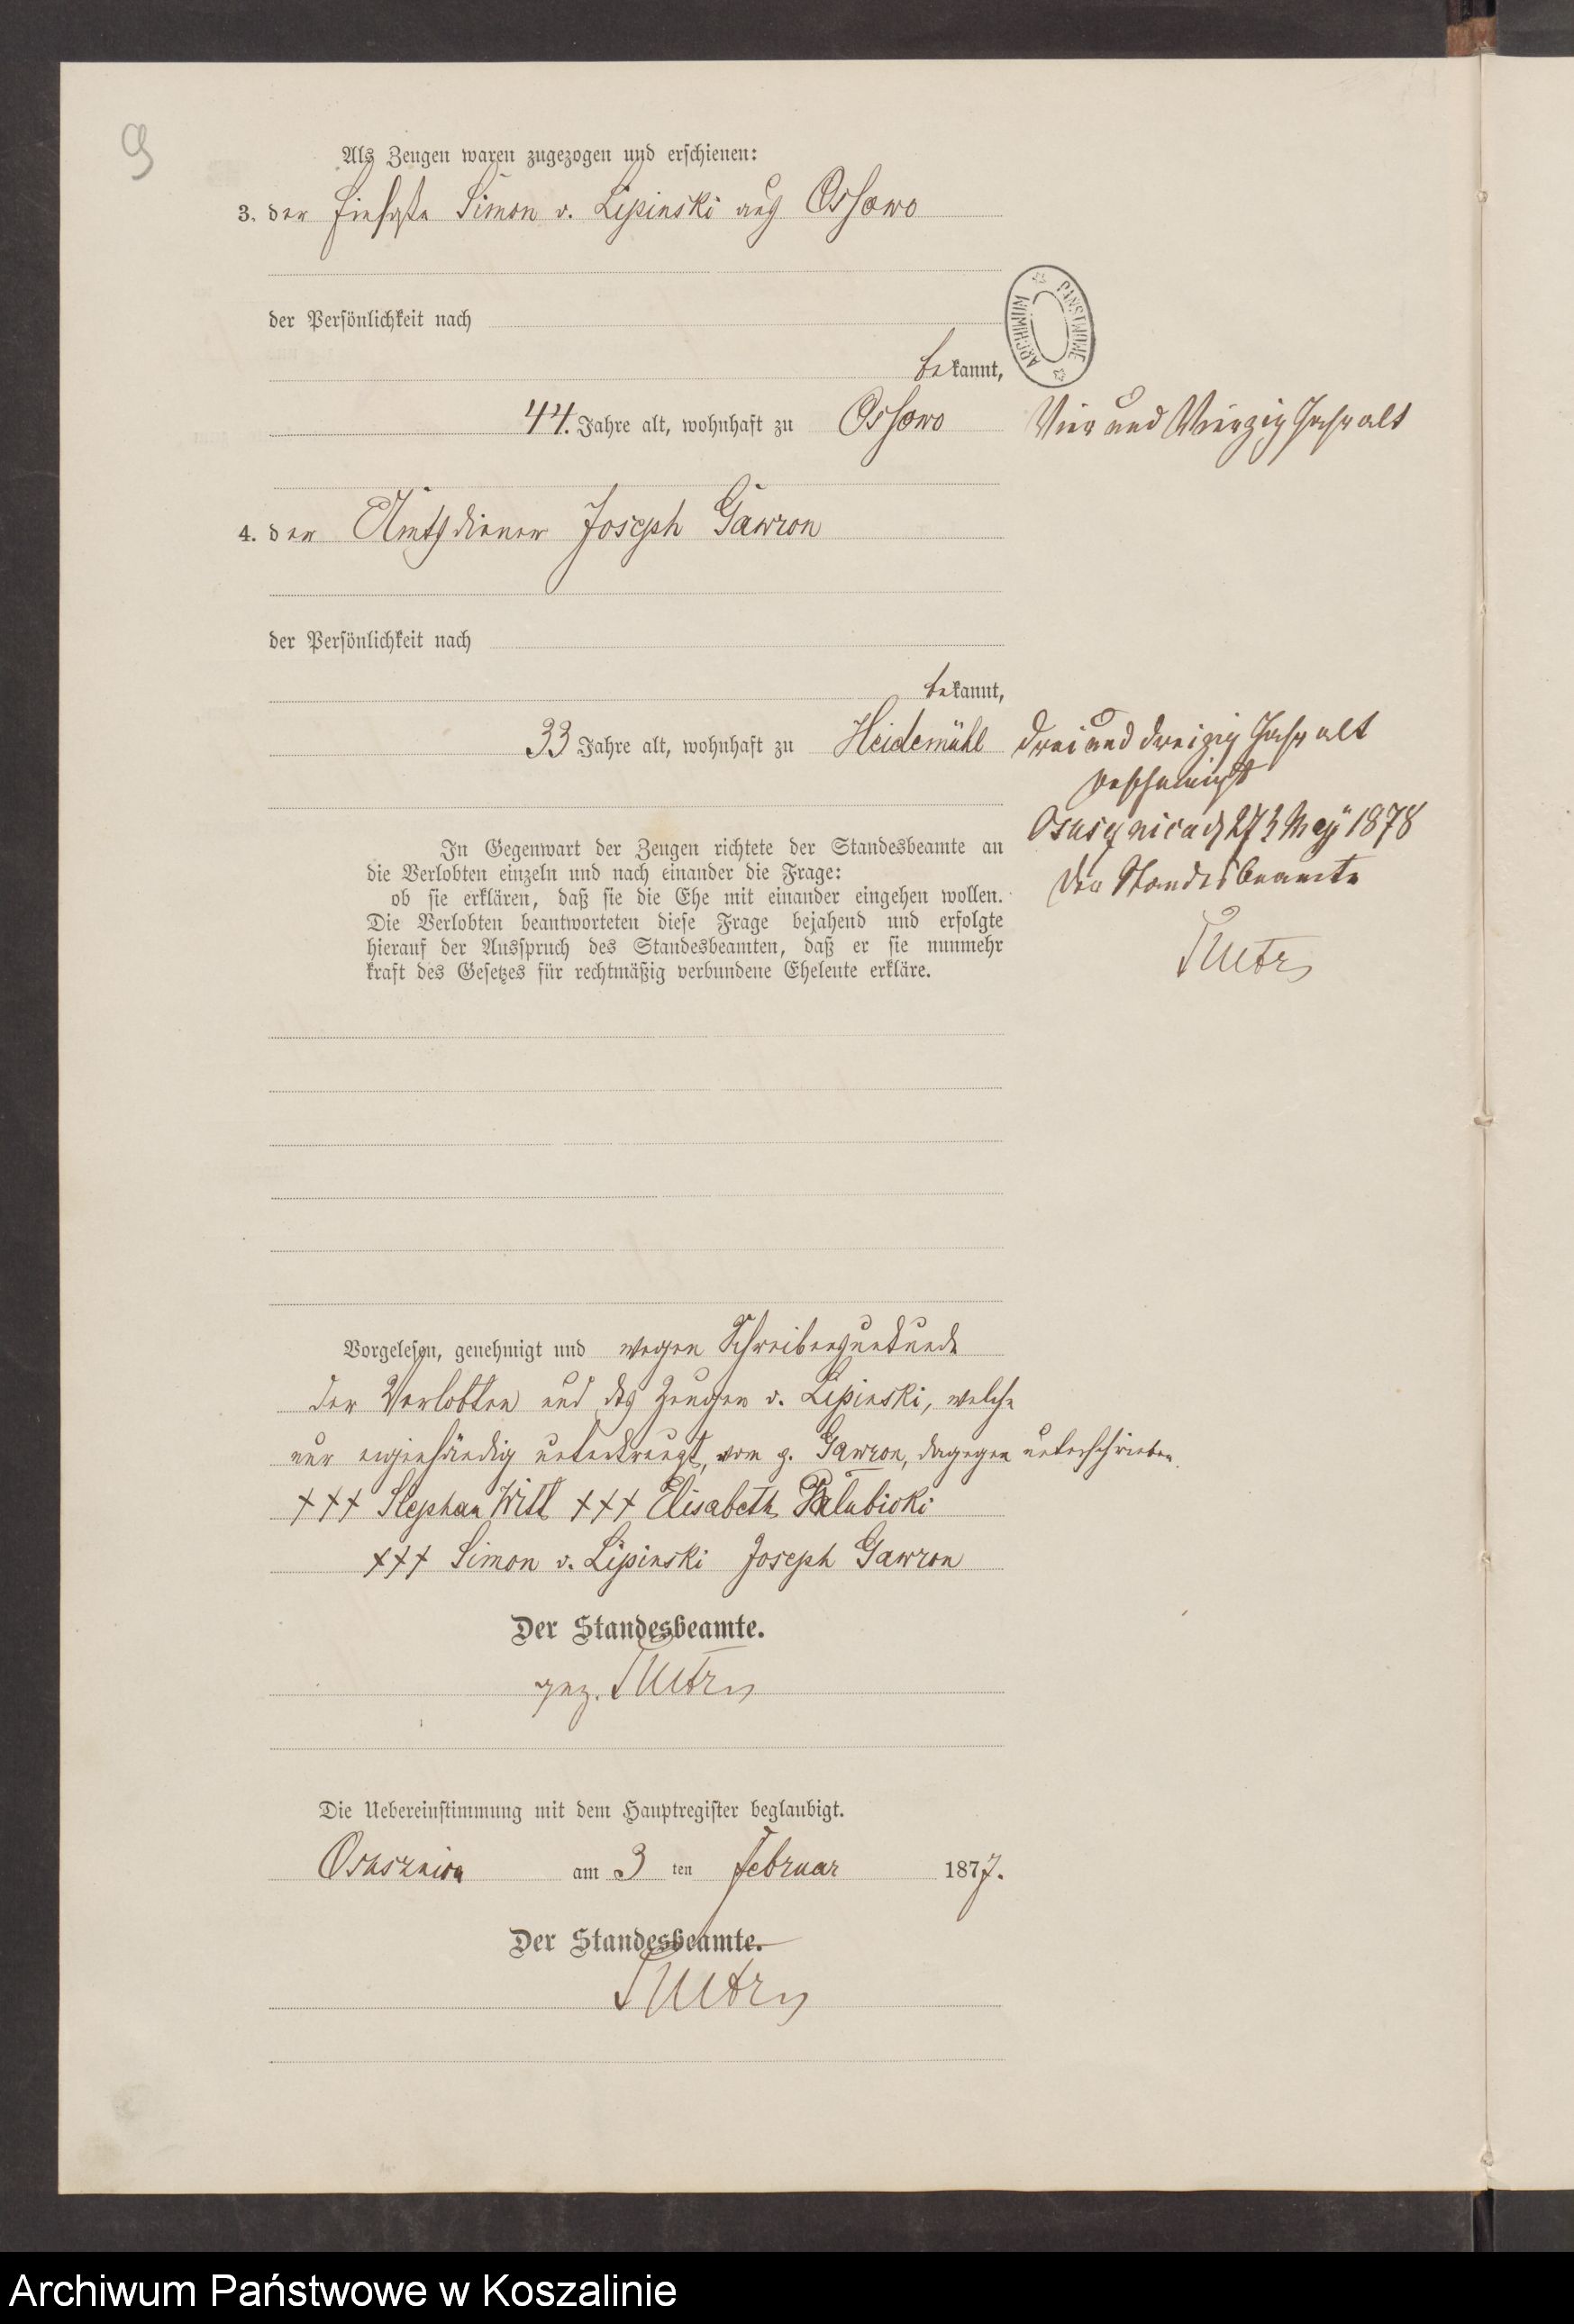 9
Als Zeugen waren zugezogen und erschienen:
3. der Simon v. Lipinski aus Ossowo
der Persönlichkeit nach
bekannt,
44. Jahre alt, wohnhaft zu Ossowo
Vier und Vierzig Jahr alt
4. der Amtsdiener Joseph Gawron
der Persönlichkeit nach
bekannt,
33 Jahre alt, wohnhaft zu Heidemühl
drei und dreizig Jahr alt
Osusznica 27 1878
Der Standesbeamte
In Gegenwart der Zeugen richtete der Standesbeamte an
die Verlobten einzeln und nach einander die Frage:
ob sie erklären, daß sie die Ehe mit einander eingehen wollen.
Die Verlobten beantworteten diese Frage bejahend und erfolgte
hierauf der Ausspruch des Standesbeamten, daß er sie nunmehr
kraft des Gesetzes für rechtmäßig verbundene Eheleute erkläre.
Vorgelesen, genehmigt und wegen Schreibensunkunde
der Verlobten und des Zeugen v. Lipinski, welche
nur eigenhändig unterkreuzt, vom g. Gawron, dagegen unterschrieben.
+++ Stephan Witt +++ Elisabeth Palubicki
+++ Simon v. Lipinski Joseph Gawron
Der Standesbeamte.
gez.
Die Uebereinstimmung mit dem Hauptregister beglaubigt.
Osusznica am 3 ten Februar 1877.
Der Standesbeamte.
ARCHIWUM PAŃSTWOWE
Archiwum Państwowe w Koszalinie